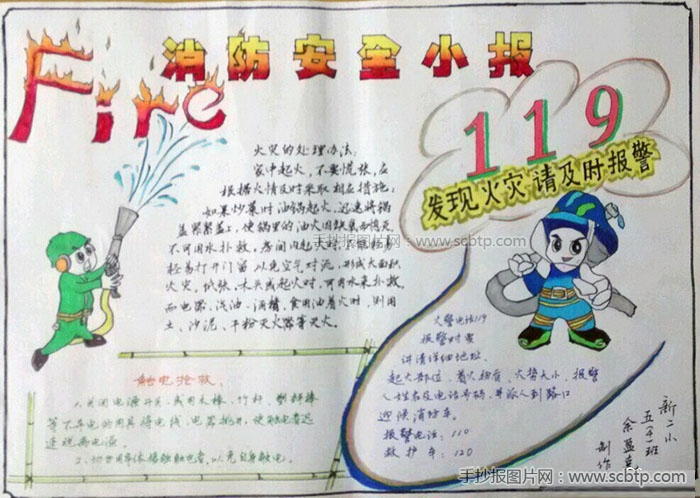 Fire
消防安全小报
119
发现火灾请及时报警
火灾的处理办法:
家中起火,不要慌张,应
根据火情及时采取相应措施:
如果炒菜时油锅起火,迅速将锅
盖紧紧盖上,使锅里的油火因缺氧而熄灭,
不可用水扑救。房间内起火时,不能
轻易打开门窗以免空气对流,形成大面积
火灾。纸张、木头或起火时,可用水来扑救,
而电器、汽油、酒精、食用油着火时,则用
土、沙泥、干粉灭火器等灭火。
手抄报图片网:www.scbtp.com
触电抢救
1、关闭电源开关,或用木棒、竹杆、塑料棒
等不导电的用具将电线、电器挑开,使触电者迅
速脱离电源。
2、切勿用手体接触触电者,以免自身触电。
火警电话119
报警时要
讲清详细地址、
起火部位、着火物质、火势大小、报警
人姓名及电话号码,并派人到路口
迎候消防车。
报警电话:110
救护车:120
新二小
五(4)班
余盈
制作
手抄报图片网:www.scbtp.com